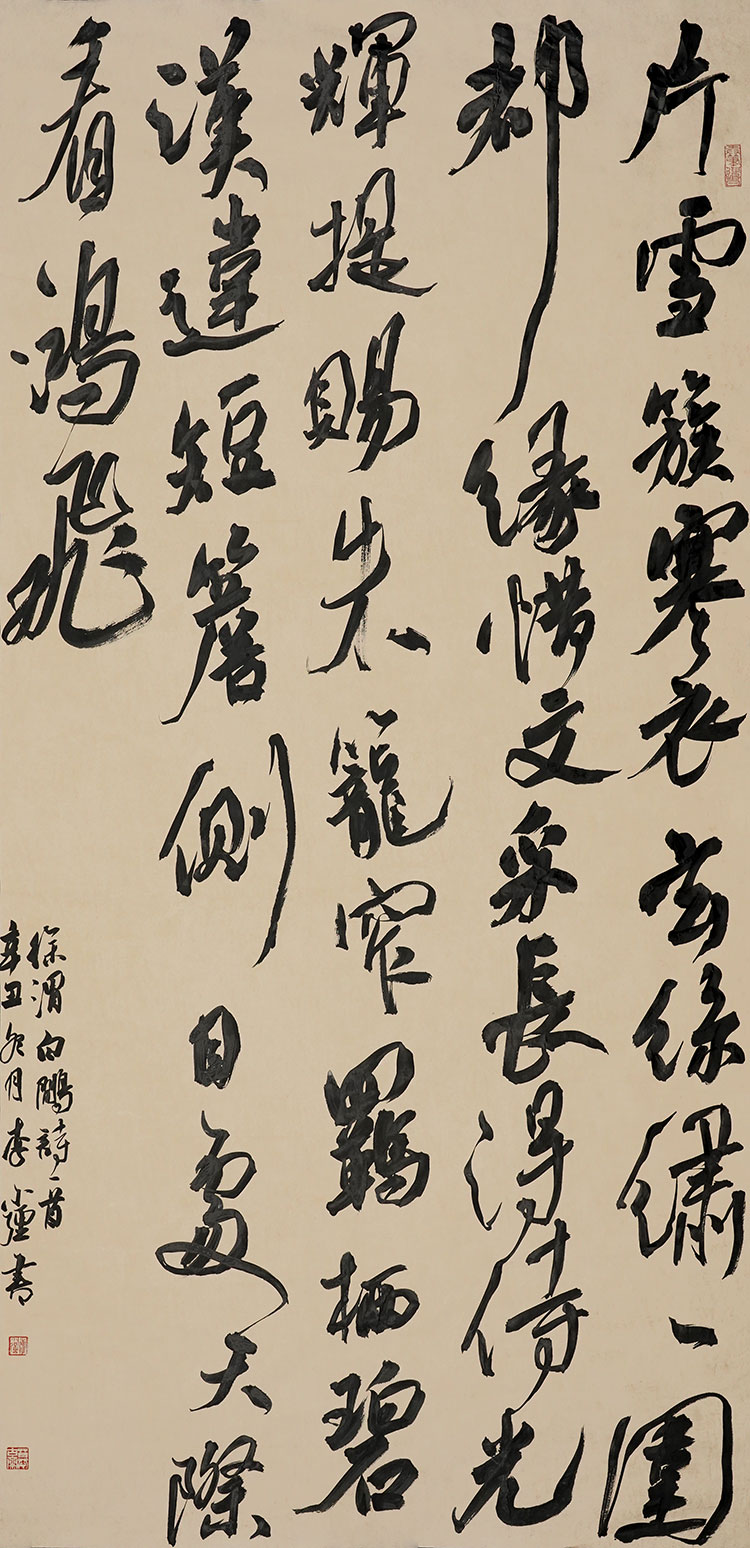 片雪簇寒衣玄絲繡一圍
都緣惜文采長得侍光
輝提賜朱籠窄羈栖碧
漢違短簷側目處天際
看鴻飛
徐渭白鷴詩一首
辛丑冬月李小書